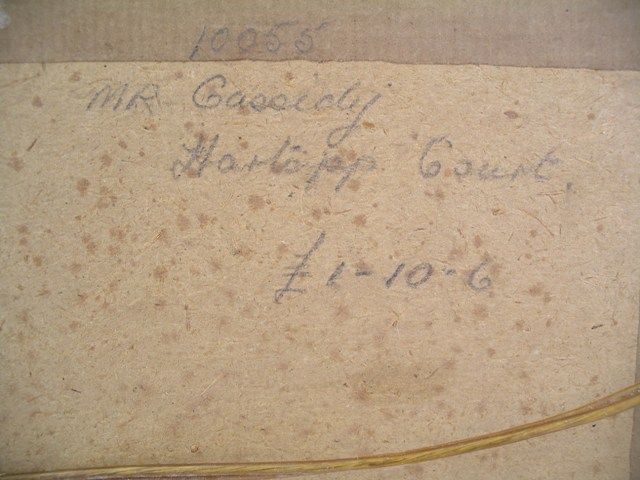 10055
MR Cassidy
Hartopp Court,
£1-10-6